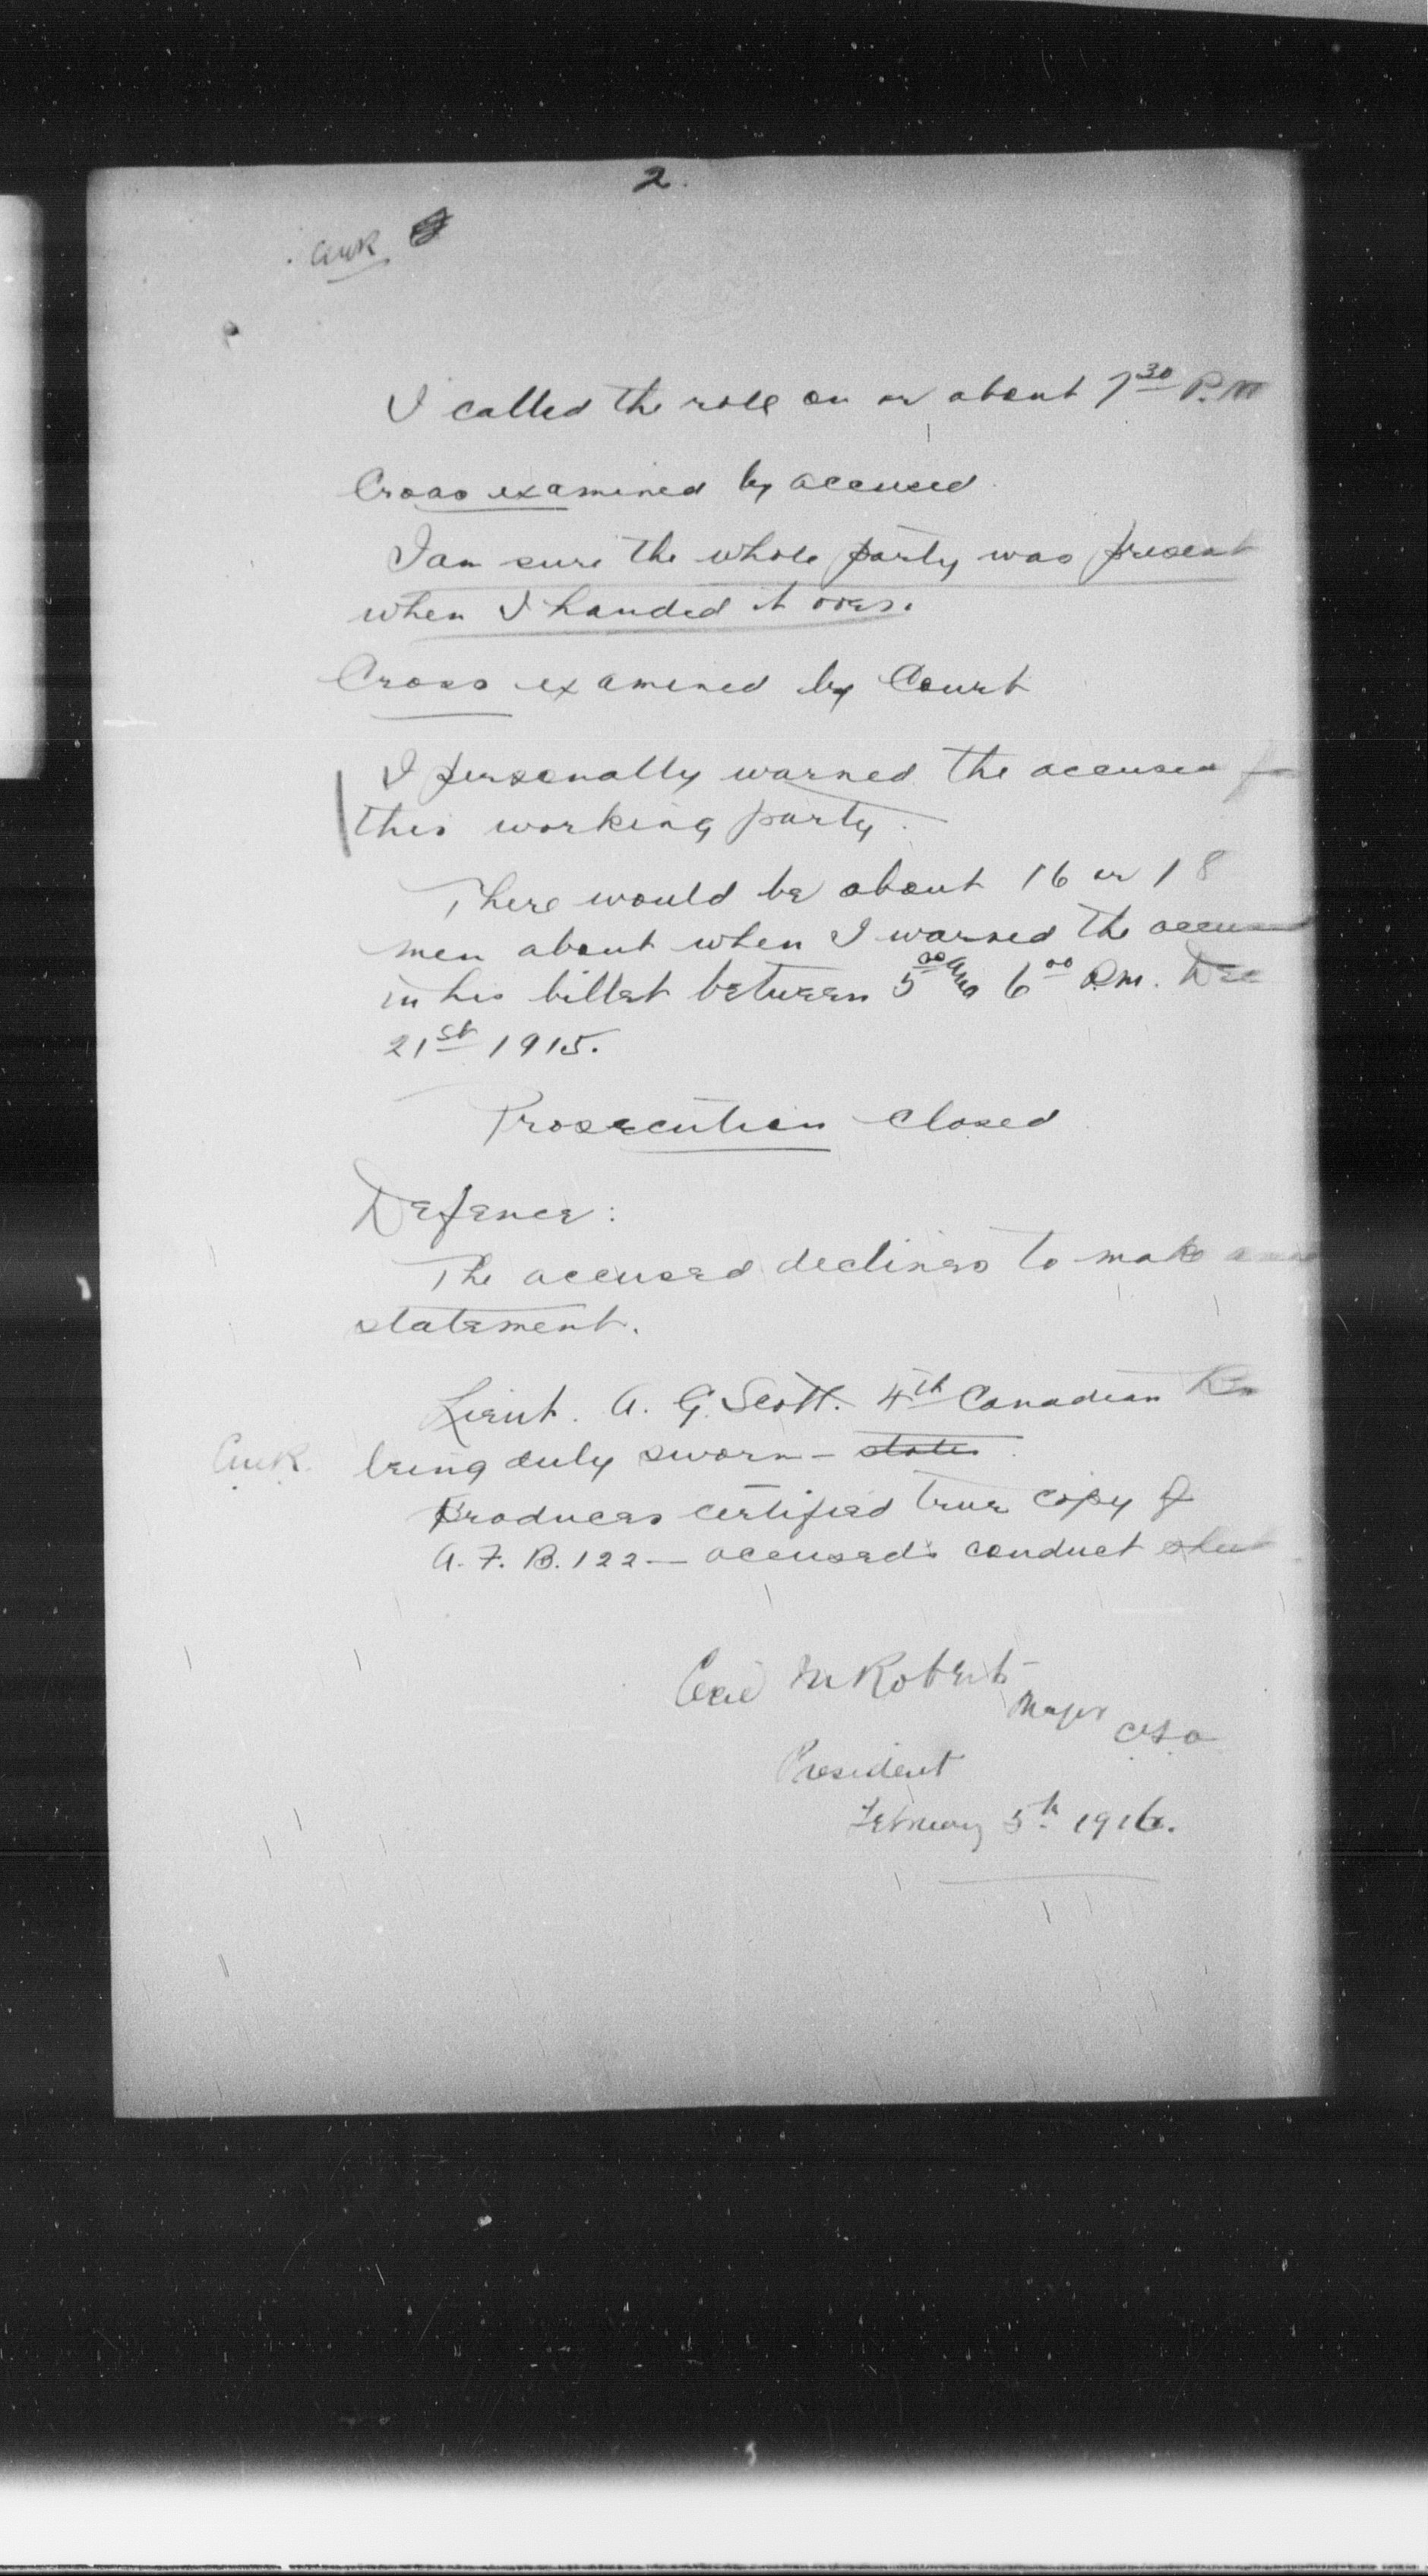 2.
CMR
I called the role on or about 7 30 P.M
Cross examined by accused.
I am sure the whole party was present
when I handed it over.
Cross examined by Court
I personally warned the accused
this working party.
There would be about 16 or 18
men about when I warned the accused
in his billet between 5 00 and 6 00 P.M. Dec
21st 1915.
Prosecution Closed
Defence:
The accused declines to make
statement.
Lieut. A. G. Scott. 4th Canadian
CMR. being duly sworn - states
Produces certified true copy of
A. F. B. 122 - accused's conduct sheet
Cecil M Roberts
Major
President
February 5th 1916.